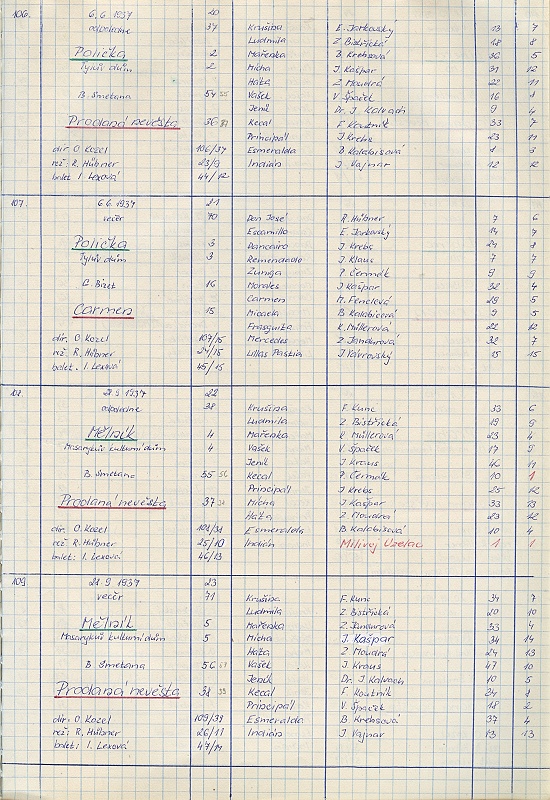 106. 6.6. 1937 20
odpoledne 37 Krušina E. Jarkovský 13 7
Ludmila Z. Bistřická 18 8
Polička 2 Mařenka B. Krehsová 36 5
Tylův dům 2 Micha J. Kašpar 31 12
Háta Z. Moudrá 22 11
B. Smetana 54 Vašek V. Špaček 16 1
Jeník Dr. J. Kalvach 9 4
Prodaná nevěsta 36 Kecal F. Koutník 33 7
Principál J. Krebs 23 11
dir. O. Kozel 106/37 Esmeralda B. Kalabisová 1 3
rež: R. Hübner 23/9 Indián J. Vajnar 12 12
balet I. Lexová 44/12
107. 6.6. 1937 21
večer 70 Don José R. Hübner 7 6
Escamillo E. Jarkovský 14 7
Polička 3 Dancairo J. Krebs 24 8
Tylův dům 3 Remendado J. Klaus 7 7
Zuniga P. Čermák 9 9
G. Bizet 16 Morales J. Kašpar 32 4
Carmen M. Fenelová 29 5
Carmen 15 Micaela B. Kalabisová 9 5
Frasquita R. Müllerová 22 12
dir. O. Kozel 107/15 Mercedes Z. Jandurová 32 7
rež. R. Hübner 24/15 Lillas Pastia J. Vavrovský 15 15
balet. I. Lexová 45/15
108. 21.9. 1937 22
odpoledne 38 Krušina F. Kunc 33 6
Ludmila Z. Bistřická 19 9
Mělník 4 Mařenka R. Müllerová 23 4
Masarykův kulturní dům 4 Vašek V. Špaček 17 9
Jeník J. Kraus 46 11
B. Smetana 55 56 Kecal P. Čermák 10 1
Principál J. Krebs 25 12
Prodaná nevěsta 37 Micha J. Kašpar 33 13
Háta Z. Moudrá 23 12
dir. O. Kozel 108/31 Esmeralda B. Kalabisová 10 4
rež. R. Hübner 25/10 Indián Milivoj Uzelac 1 1
balet: I. Lexová 46/13
109 21.9. 1937 23
večer 71 Krušina F. Kunc 34 7
Ludmila Z. Bistřická 20 10
Mělník 5 Mařenka Z. Jandurová 33 4
Masarykův kulturní dům 5 Micha J. Kašpar 34 14
Háta Z. Moudrá 24 13
B. Smetana 56 Vašek J. Kraus 47 10
Jeník Dr. J. Kalvach 10 5
Prodaná nevěsta 38 Kecal F. Koutník 24 1
Principál V. Špaček 18 2
dir. O. Kozel 109/39 Esmeralda B. Krehsová 37 4
rež: R. Hübner 26/11 Indián J. Vajnar 13 13
balet: I. Lexová 47/14